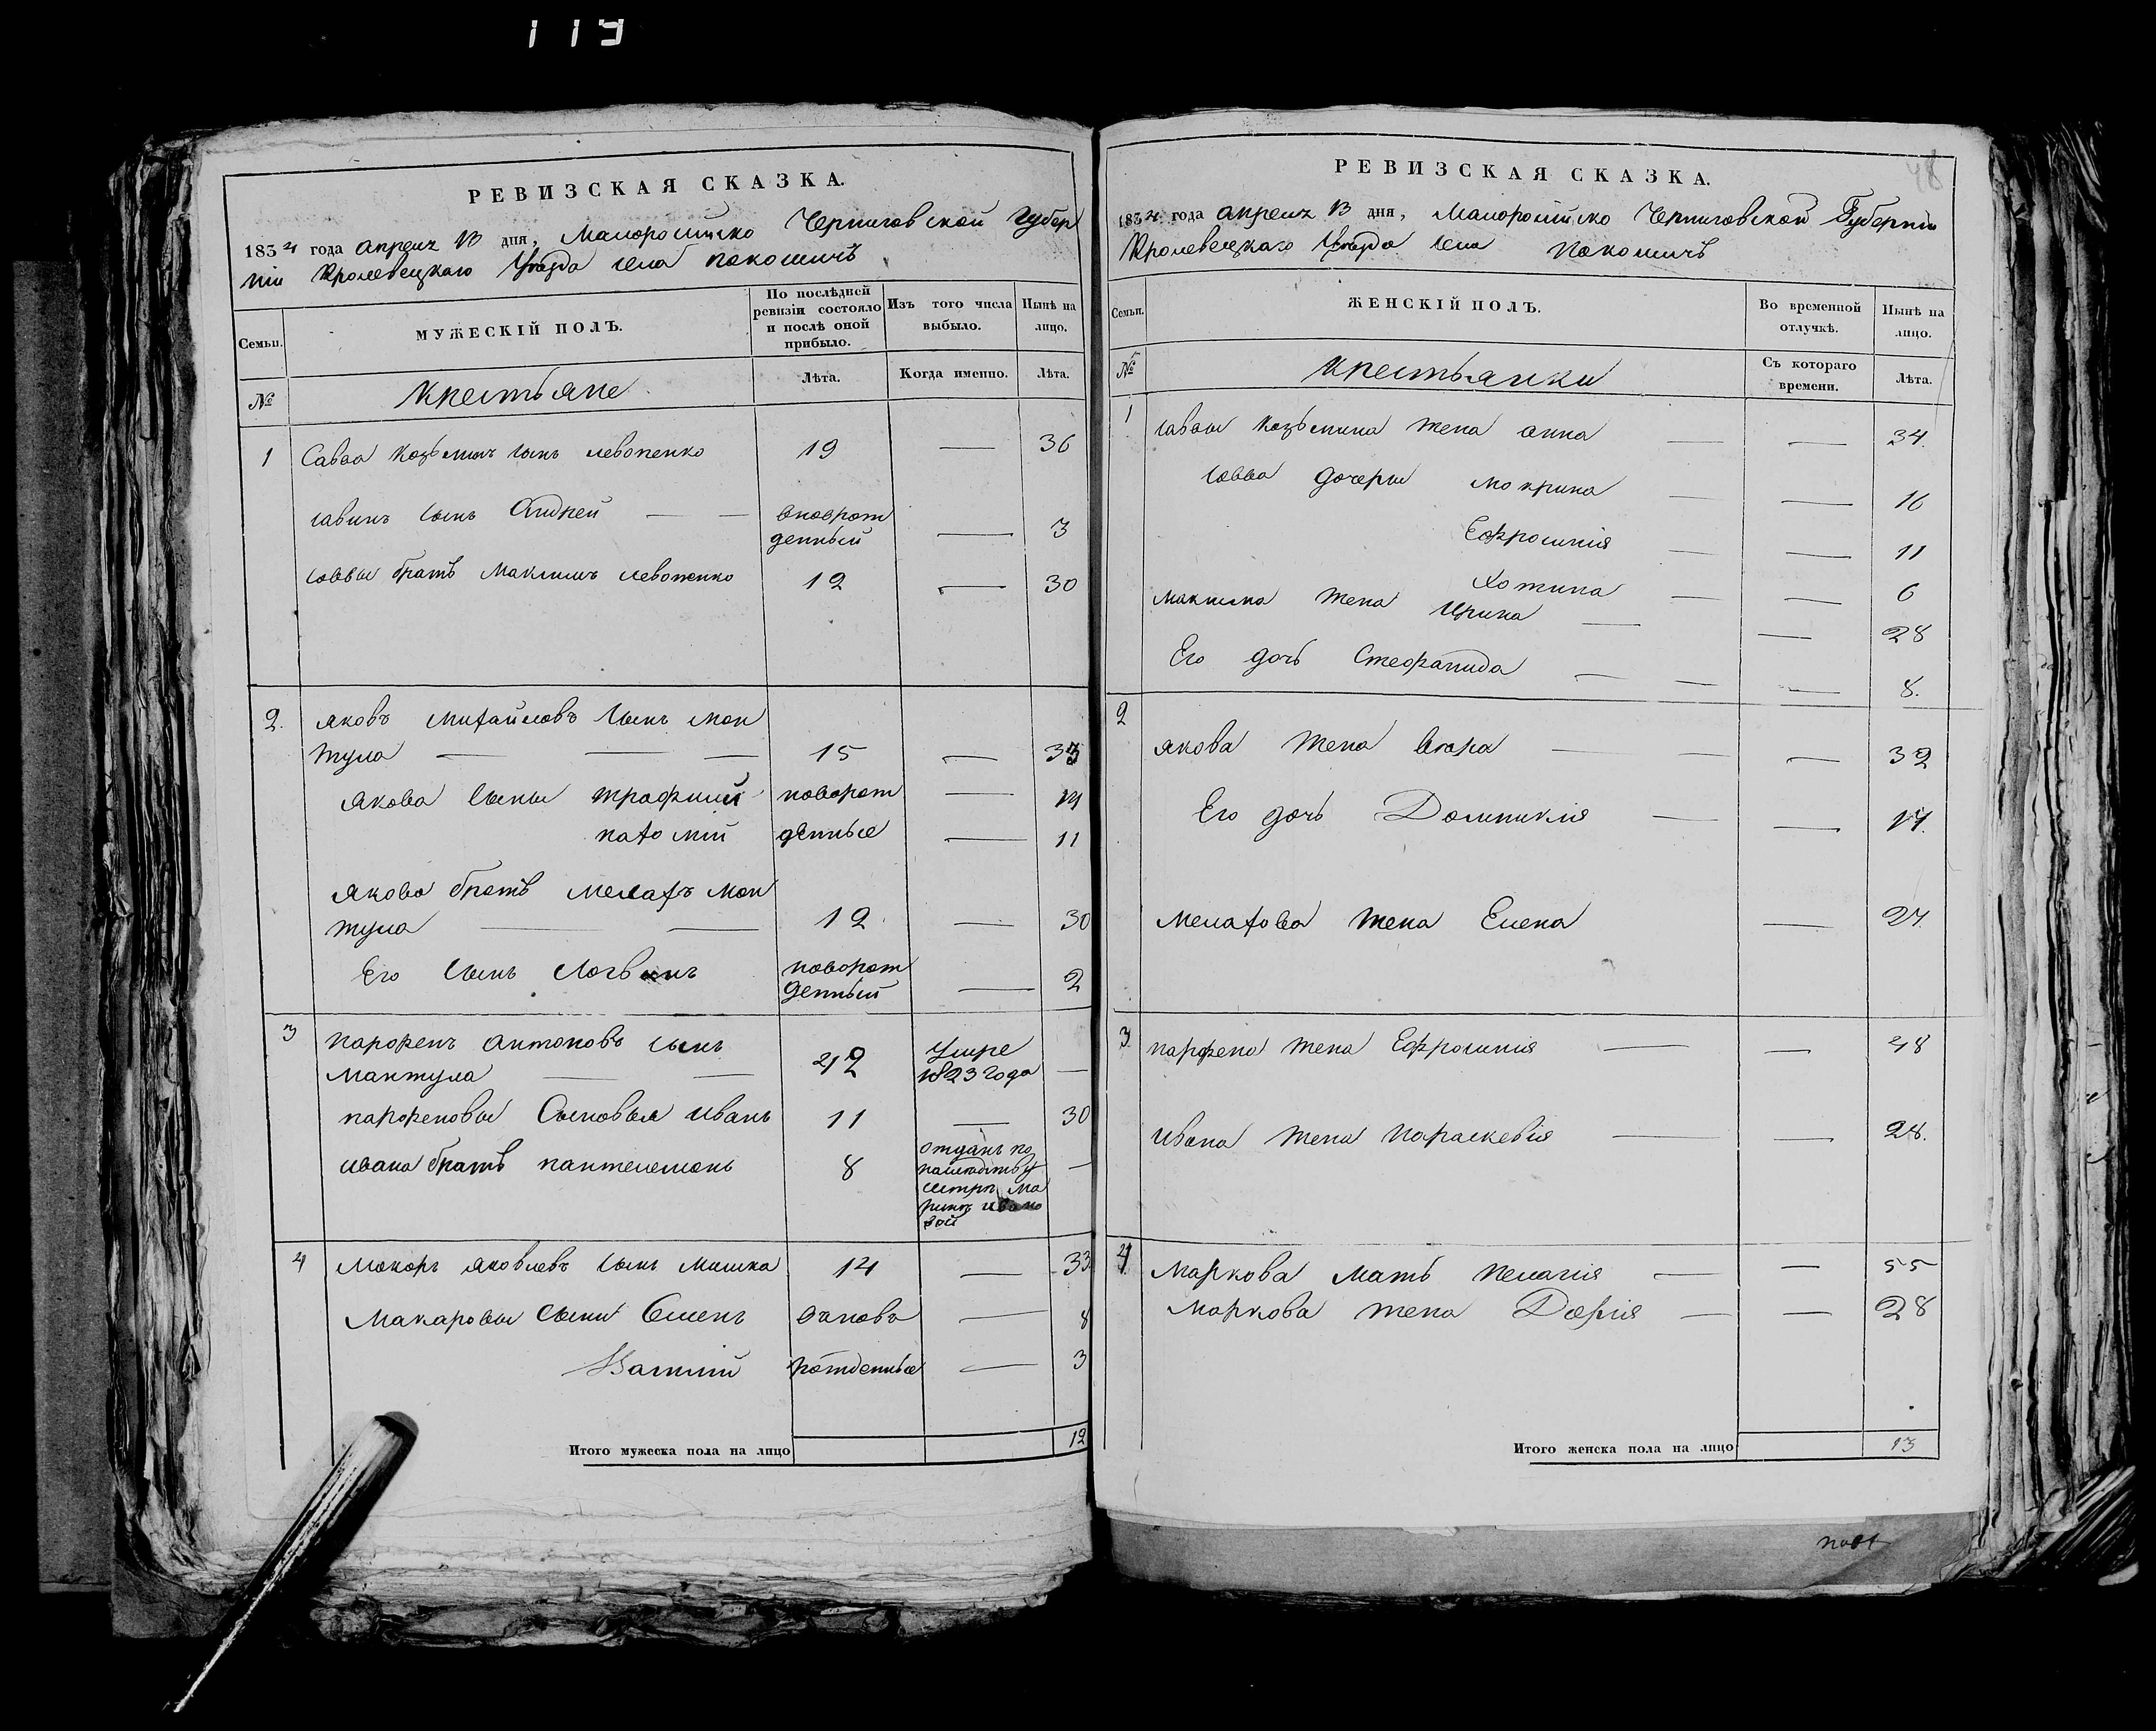 119
РЕВИЗСКАЯ СКАЗКА.
1834 года апреля 13 дня, Малоросійско Черниговской Губер
ніи Кролевецкаго Уезда села Покошичъ
Семьи.
МУЖЕСКІЙ ПОЛЪ.
По послѣдней ревизіи состояло и послѣ оной прибыло.
Изъ того числа выбыло.
Нынѣ на лицо.
№
крестьяне
Лѣта.
Когда именно.
Лѣта.
1 Савва Козьминъ сынъ левоненко 19 — 36
савинъ сынъ Андрей — — вновьрож
денный — 3
саввы братъ Максимъ левоненко 12 — 30
2. яковъ михайловъ сынъ ман
тула — — — 15 — 33
Якова сыны трофимъ новорож — 14
пахомій денные — 11
Якова братъ мелахъ ман
тула — — 12 — 30
Его сынъ Логвинъ новорож
денный — 2
3 парфенъ антоновъ сынъ
Мантула — — 42 Умре
1823 года —
парфеновы Сыновья иванъ 11 — 30
ивана братъ пантелемонъ 8 отданъ по
—
сестры Ма
4 Макаръ яковлевъ сынъ Мишка 14 — 33
Макаровы сыны Семенъ вновь — 8
Василій рожденные — 3
Итого мужеска пола на лицо 12
РЕВИЗСКАЯ СКАЗКА.
48
1834 года апреля 13 дня, Малоросійско Черниговской Губерніи
Кролевецкаго Уезда села Покошичъ
Семьи.
ЖЕНСКІЙ ПОЛЪ.
Во временной отлучкѣ.
Нынѣ на лицо.
№
крестьянки
Съ котораго времени.
Лѣта.
1 саввы Козьмина жена анна — — 34.
савва дочеры мокрина — — 16
Ефросинія — — 11
Хотина — — 6
максима жена Ирина — — 28
Его дочь Стефанида — — — 8.
2
якова жена — — — 32
Его дочь Домникія — — 14.
Мелахова жена Елена — 27.
3 парфена жена Ефросинія — — 48
ивана жена параскевія — — 28.
4 Маркова мать пелагія — — 55
Маркова жена Дарія — — 28
Итого женска пола на лицо 13